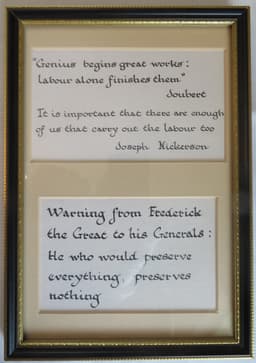 "Genius begins great works:
labour alone finishes them"
Joubert
It is important that there are enough
of us that carry out the labour too
Joseph Nickerson
Warning from Frederick
the Great to his Generals:
He who would preserve
everything, preserves
nothing